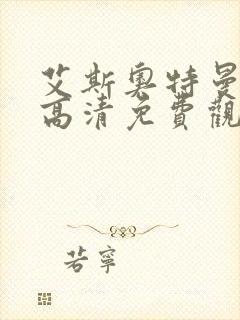 艾斯奧特曼
高清免費觀
若寧